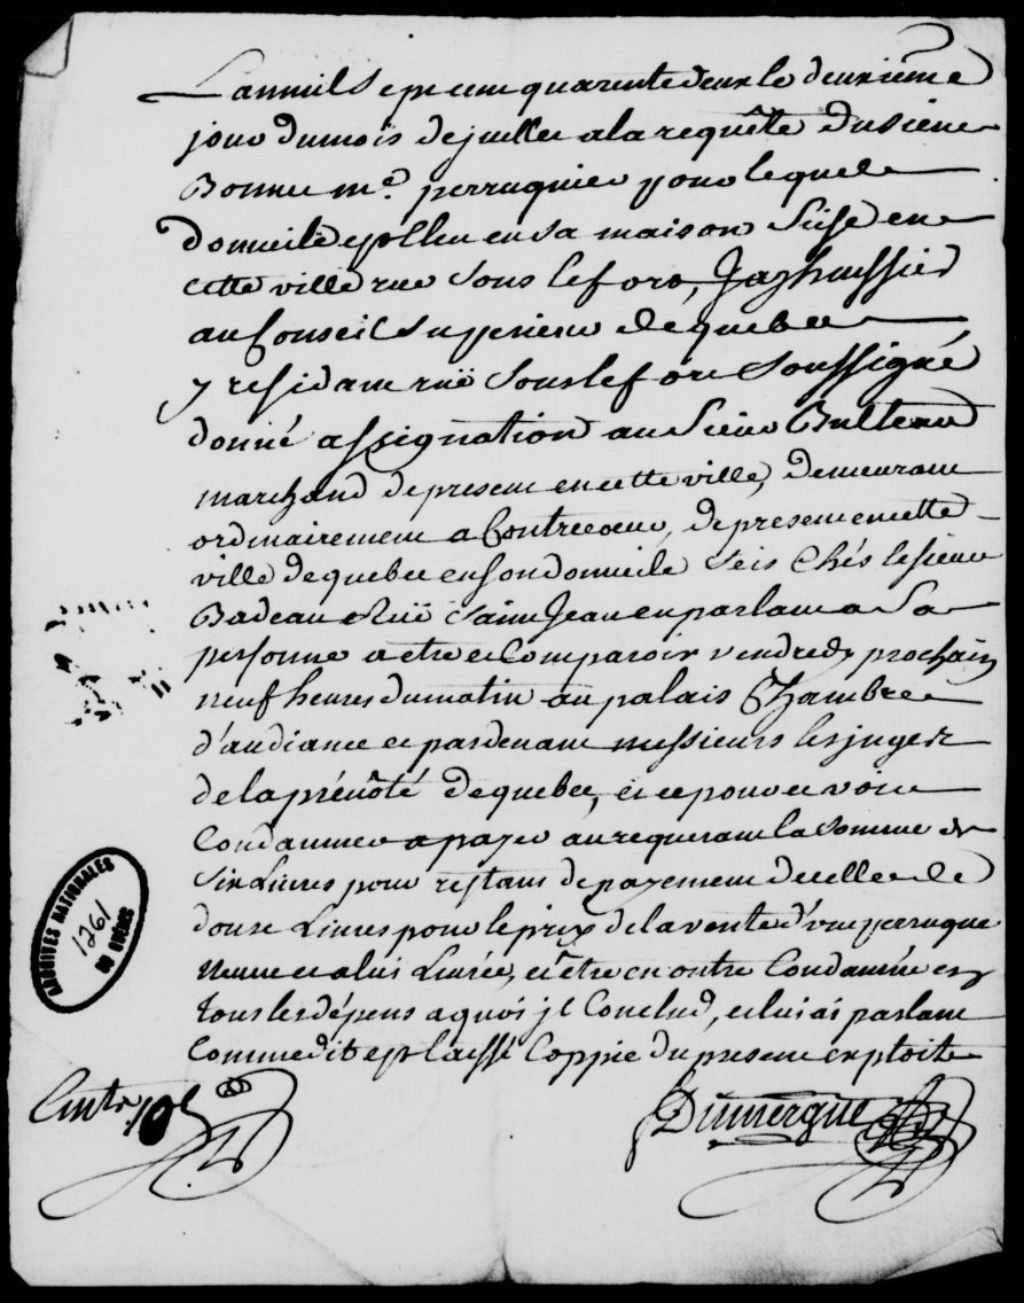 Lan mil Sept cent quarente deux le deuxième
jour du mois de juillet a la requête du sieur
Bonnet md. perruquier pour lequel
domicile est Eleu en sa maison Size en
cette ville rue Sous le fort, Jay huissier
au Conseil Supperieur de quebec
y residant ruë Sous le fort Soussigné
donné assignation au Sieur Bulteau
marchand de present en cette ville, demeurant
ordinairement a Contrecoeur, de present en cette
ville de quebec en son domicile Seis Chés le sieur
Badeau Ruë Saint Jean en parlant a Sa
personne a etre et Comparoir vendredy prochain
neuf heures du matin au palais Chambre
d'audiance et pardevant messieurs les juges
de la prévôté de quebec, et ce pour ce voir
Condamner a payer au requerant la Somme de
Six Livres pour restant de payement de celle de
douse Livres pour le prix de la vente d'une perruque
neuve a lui Livrée, et être en outre Condamné en
tous les dépens a quoi jl Conclud, et lui ai parlant
Comme dit est laissé Coppie du present exploit
Dumergue
ARCHIVES NATIONALES
1261
DU QUÉBEC